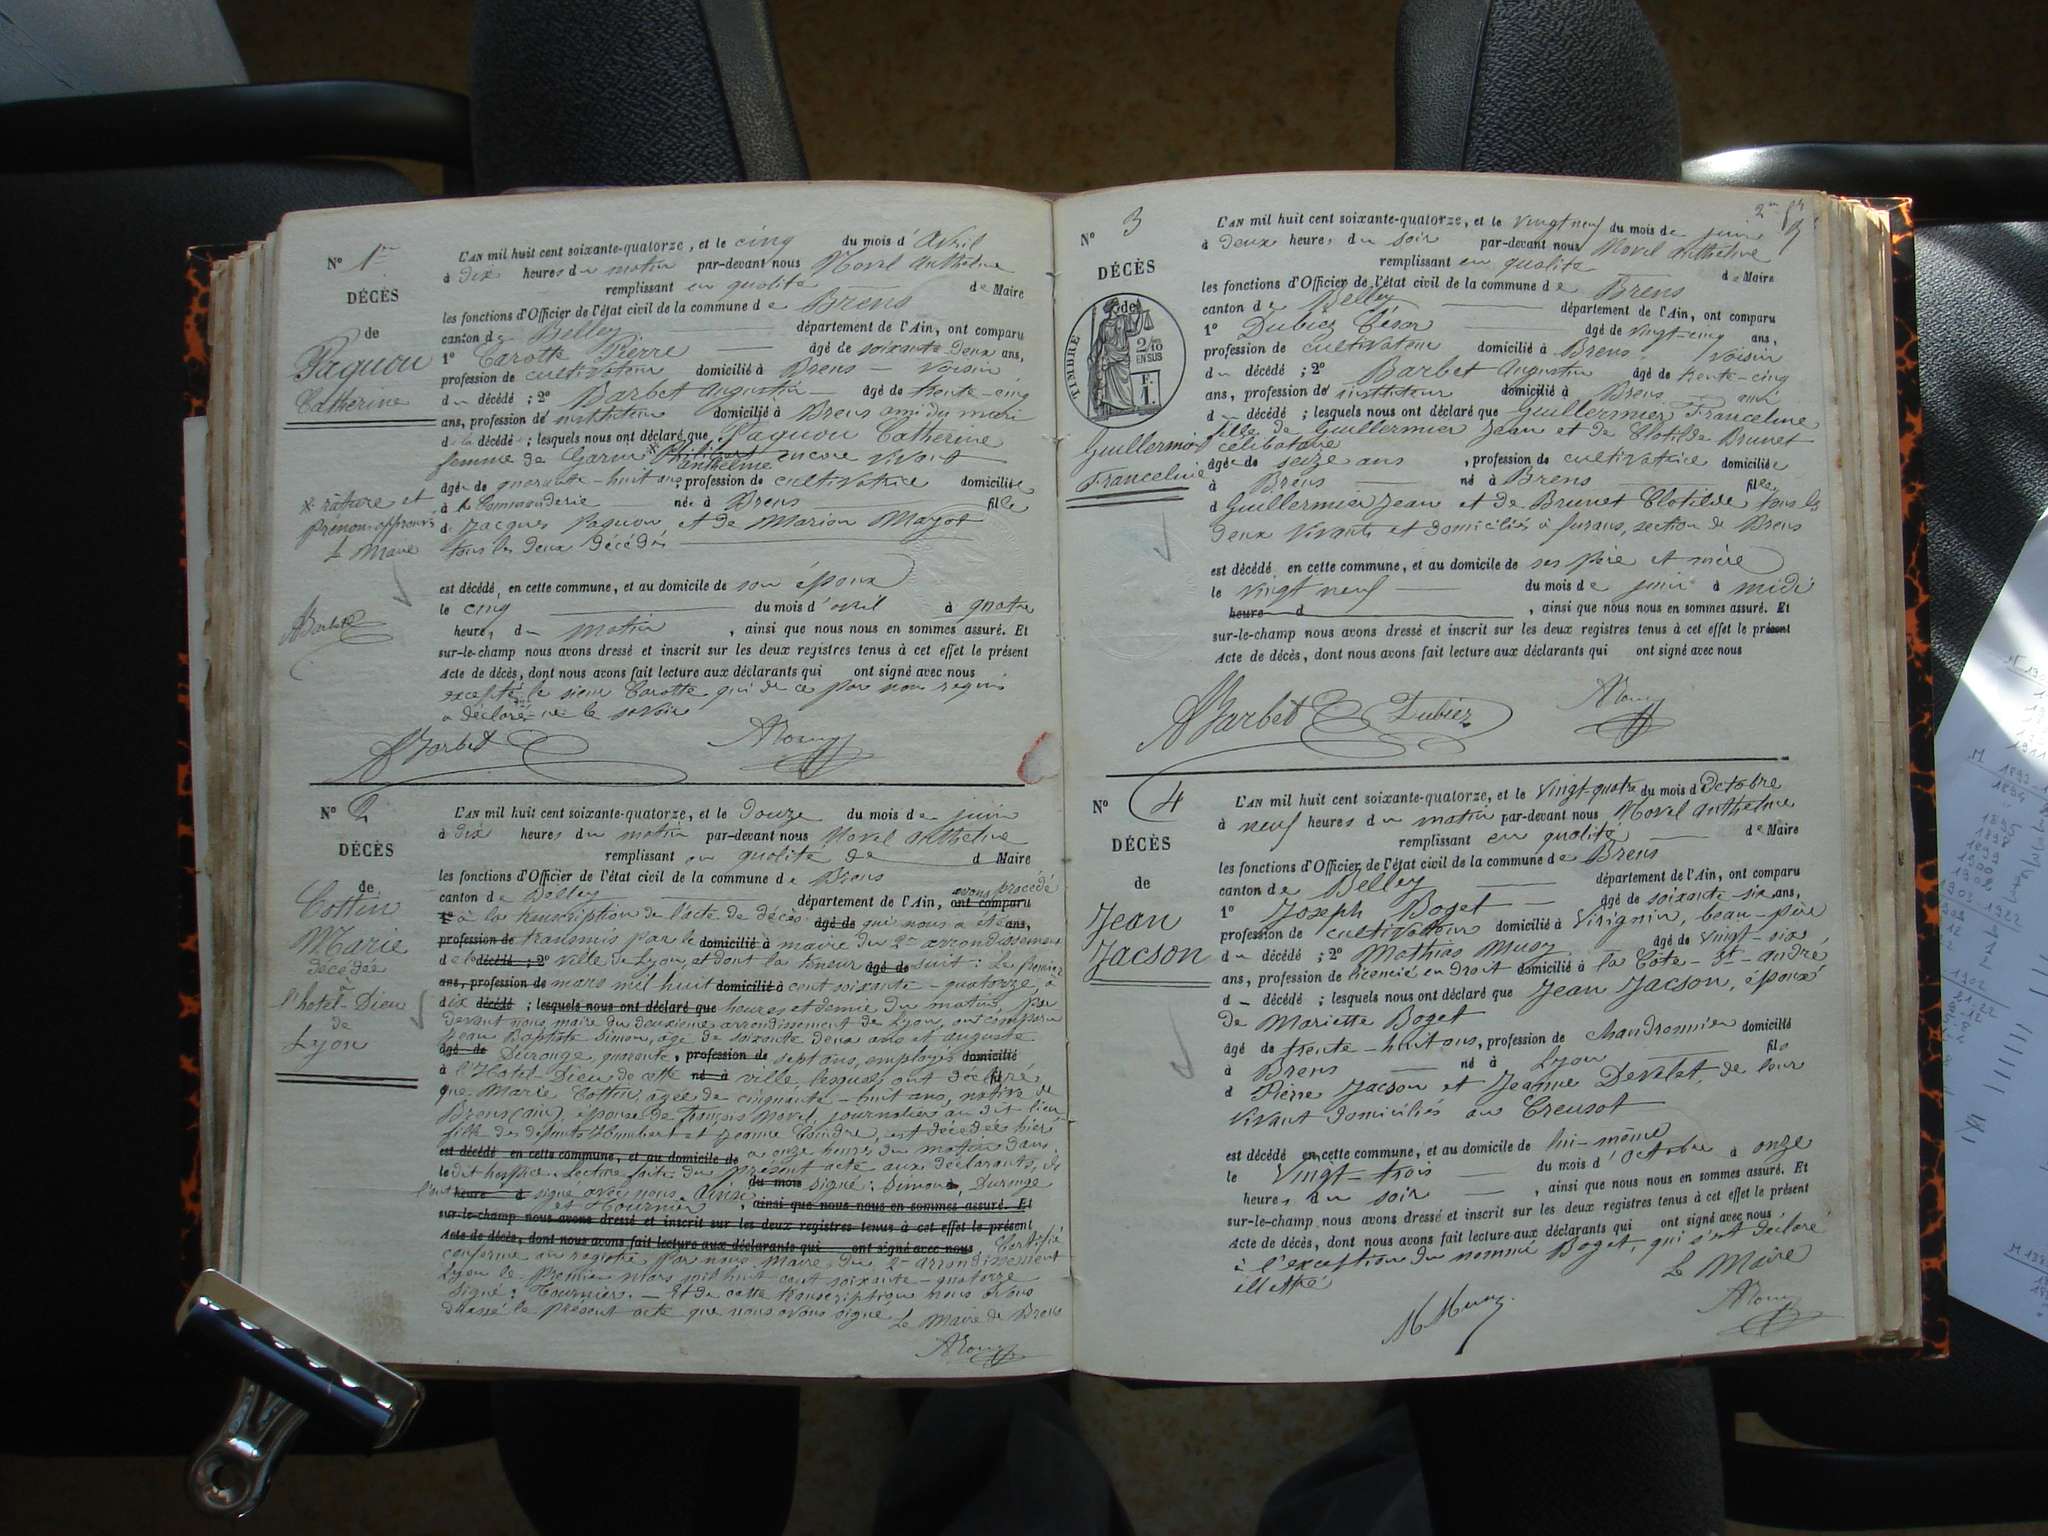 No 1er
DÉCÈS
de
Paquou
Catherine
* rature et
prénom approuvés
Le Maire
ABarbet
L'AN mil huit cent soixante-quatorze, et le cinq du mois d'Avril
à dix heures du matin par-devant nous Morel Anthelme
remplissant en qualité de Maire
les fonctions d'Officier de l'état civil de la commune de Brens
canton de Belley département de l'Ain, ont comparu
1o Carotte Pierre âgé de soixante deux ans,
profession de cultivateur domicilié à Brens - voisin
du décédé ; 2o Barbet Augustin âgé de trente-cinq
ans, profession d'instituteur domicilié à Brens ami du mari
de la décédé ; lesquels nous ont déclaré que Paquou Catherine
femme de Garin * Philibert encore vivant
anthelme
âgé de quarante-huit ans, profession de cultivatrice domiciliée
à la Commanderie née à Brens fille
de Jacques Paquou et de Marion Mayot
tous les deux décédés
est décédé en cette commune, et au domicile de son époux
le cinq du mois d'avril à quatre
heures du matin, ainsi que nous nous en sommes assuré. Et
sur-le-champ nous avons dressé et inscrit sur les deux registres tenus à cet effet le présent
Acte de décès, dont nous avons fait lecture aux déclarants qui ont signé avec nous
excepté le sieur Carotte qui de ce par nous requis
a déclaré ne le savoir
ABarbet
No 2
DÉCÈS
de
Cottin
Marie
décédée
à
l'hotel-Dieu
de
Lyon
L'AN mil huit cent soixante-quatorze, et le douze du mois de juin
à dix heures du matin par-devant nous Morel Anthelme
remplissant en qualité de d Maire
les fonctions d'Officier de l'état civil de la commune de Brens
avons procédé
canton de Belley département de l'Ain, ont comparu
1o à la transcription de l'acte de décès âgé de qui nous a été ans,
profession de transmis par le domicilié à maire du 2me arrondissement
de la décédé ; 2o ville de Lyon, et dont la teneur âgé de suit : Le premier
ans, profession de mars mil huit domicilié à cent soixante-quatorze, à
dix décédé ; lesquels nous ont déclaré que heures et demie du matin, par
devant nous maire du deuxième arrondissement de Lyon, ont comparu
Jean Baptiste Simon, âgé de soixante deux ans et auguste
âgé de Durouge, quarante, profession de sept ans, employés domicilié
à l'Hotel-Dieu de cette né à ville, lesquels ont déclaré fil
que Marie Cottin, âgée de cinquante-huit ans, native de
Brens (ain), épouse de françois Morel journalier au dit lieu
fille des défunts Humbert et Jeanne Coindre, est décédée hier
est décédé en cette commune, et au domicile de à onze heures du matin dans
le dit hospice. Lecture faite du présent acte aux déclarants, ils
l'ont heure d signé avec nous. Ainsi du mois signé : Simon, Durouge
et Fournier, ainsi que nous nous en sommes assuré. Et
sur-le-champ nous avons dressé et inscrit sur les deux registres tenus à cet effet le présent
Acte de décès, dont nous avons fait lecture aux déclarants qui ont signé avec nous Certifié
conforme au registre par nous, maire du 2me arrondissement
Lyon le premier mars mil huit cent soixante-quatorze
signé : Fournier. - Et de cette transcription nous avons
dressé le présent acte que nous avons signé Le Maire de Brens
No 3
DÉCÈS
de
TIMBRE
2/10
EN SUS
F.
1.
Guillermier
Franceline
L'AN mil huit cent soixante-quatorze, et le vingt neuf du mois de juin
à deux heures du soir par-devant nous Morel Anthelme
remplissant en qualité de Maire
les fonctions d'Officier de l'état civil de la commune de Brens
canton de Belley département de l'Ain, ont comparu
1o Dubiez César âgé de vingt-cinq ans,
profession de cultivateur domicilié à Brens, voisin
du décédé ; 2o Barbet Augustin âgé de trente-cinq
ans, profession d'instituteur domicilié à Brens ami
d décédé ; lesquels nous ont déclaré que Guillermier Franceline
fille de Guillermier Jean et de Clotilde Brunet
célibataire
âgé de seize ans, profession de cultivatrice domiciliée
à Brens né à Brens fille
d Guillermier Jean et de Brunet Clotilde tous les
deux vivants et domiciliés à furans, section de Brens
est décédé en cette commune, et au domicile de ses père et mère
le vingt neuf du mois de juin à midi
heure d, ainsi que nous nous en sommes assuré. Et
sur-le-champ nous avons dressé et inscrit sur les deux registres tenus à cet effet le présent
Acte de décès, dont nous avons fait lecture aux déclarants qui ont signé avec nous
ABarbet Dubiez
No 4
DÉCÈS
de
Jean
Jacson
L'AN mil huit cent soixante-quatorze, et le vingt-quatre du mois d'Octobre
à neuf heures du matin par-devant nous Morel Anthelme
remplissant en qualité de Maire
les fonctions d'Officier de l'état civil de la commune de Brens
canton de Belley département de l'Ain, ont comparu
1o Joseph Boget âgé de soixante-six ans,
profession de cultivateur domicilié à Virignin, beau-père
du décédé ; 2o Mathias Musy âgé de vingt-six
ans, profession de licencié en droit domicilié à la Côte-St-andré
d décédé ; lesquels nous ont déclaré que Jean Jacson, époux
de Mariette Boget
âgé de trente-huit ans, profession de chaudronnier domicilié
à Brens né à Lyon fils
d Pierre Jacson et Jeanne Devalet, de leur
vivant domiciliés au Creusot
est décédé en cette commune, et au domicile de lui-même
le Vingt-trois du mois d'Octobre à onze
heures du soir, ainsi que nous nous en sommes assuré. Et
sur-le-champ nous avons dressé et inscrit sur les deux registres tenus à cet effet le présent
Acte de décès, dont nous avons fait lecture aux déclarants qui ont signé avec nous
à l'exception du nommé Boget, qui s'est déclaré
illettré Le Maire
MMusy